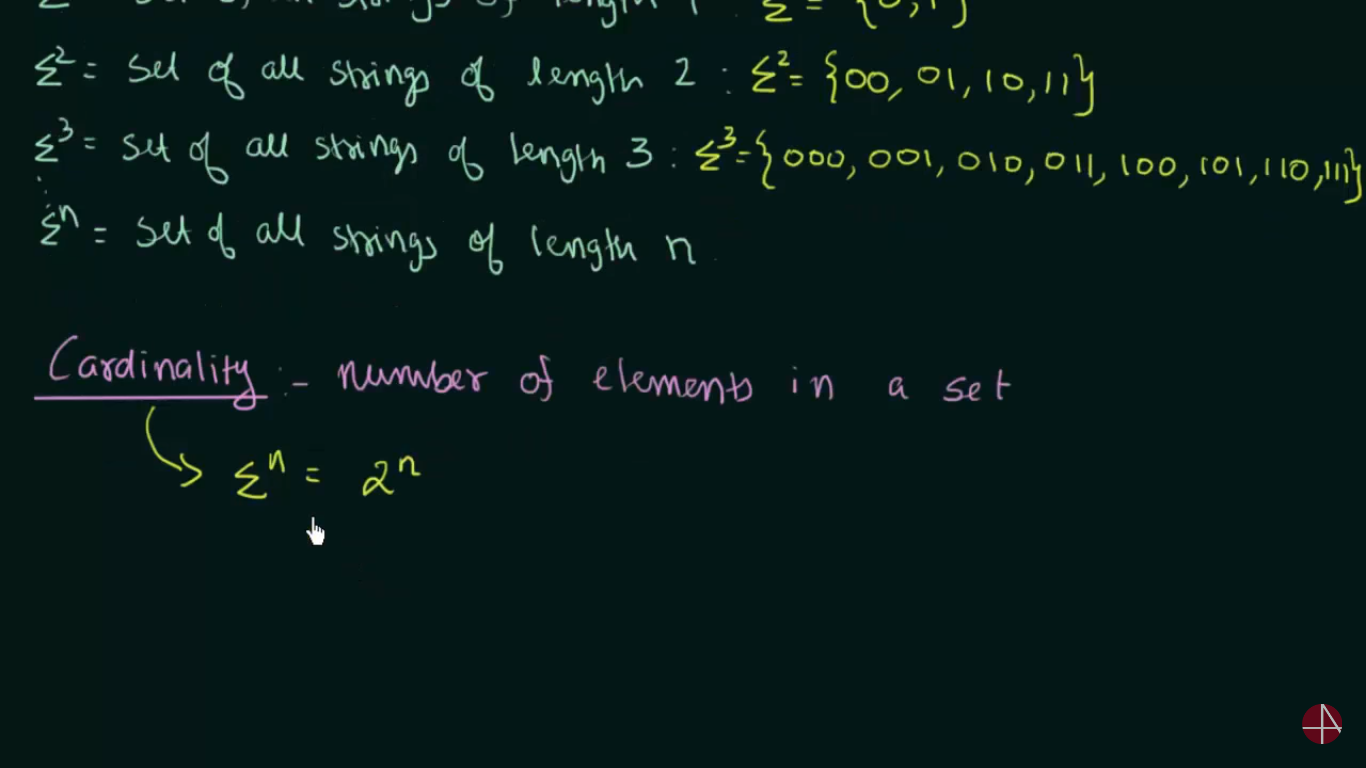 Σ² = Set of all strings of length 2 : Σ² = {00, 01, 10, 11}
Σ³ = Set of all strings of length 3 : Σ³ = {000, 001, 010, 011, 100, 101, 110, 111}
Σⁿ = Set of all strings of length n
Cardinality :- number of elements in a set
Σⁿ = 2ⁿ